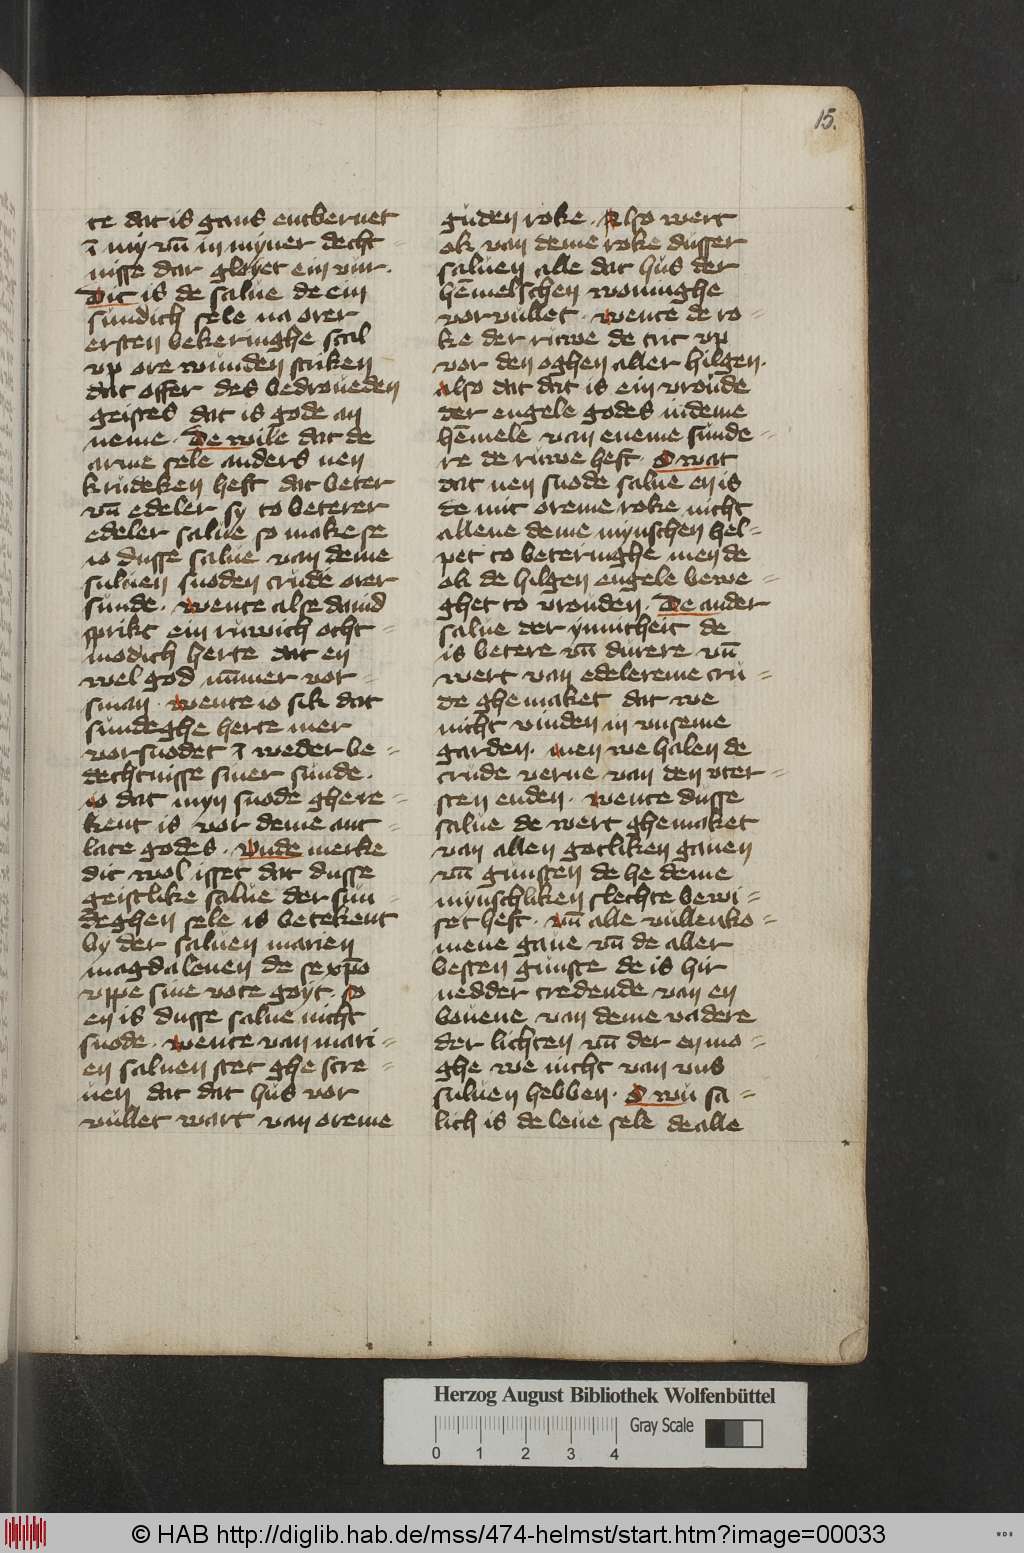 15.
te dat is gans entbernet
ī my vn̄ in myner decht
nisse dar gloyet ein vur.
Dit is de salue de ein
sundich sele na orer
ersten bekeringhe scal
vp ore wunden striken
dat offer des bedroueden
geistes dat is gode an
neme. De wile dat de
arme sele anders nen
krudeken heft dat beter
vn̄ edeler sy to beterer
edeler salue so make se
io dusse salue van deme
suluen snoden crude orer
sunde. wente alse dauid
sprikt ein ruwich oth=
modich herte dat en
wel god nūmer vor=
sman. wente io sik dat
sundeghe herte mer
vorsnodet ī weder be=
dechtnisse siner sunde.
io dat myn snode ghere=
kent is vor deme ant=
late godes. Vnde merke
dit wol isset dat dusse
geistlike salue der sun=
deghen sele is betekent
by der saluen marien
magdalenen de se xp̄o
vppe sine vote goyt. so
en is dusse salue nicht
snode. wente van mari=
en saluen stet ghescre=
uen dat dat hus vor
vullet wart van oreme
guden roke. Also wert
ok van deme roke dusser
saluen alle dat hus der
hēmelschen woninghe
vorvullet. wente de ro=
ke der ruwe de tut vp
vor den oghen aller hilgen.
also dat dat is ein vroude
der engele godes in deme
hēmele van eneme sunde=
re de ruwe heft. O wat
dat nen snode salue en is
de mit oreme roke nicht
allene deme mynschen hel=
pet to beteringhe men de
ok de hilgen engele bewe=
ghet to vrouden. De ander
salue der ynnicheit de
is betere vn̄ durere vn̄
wert van edelereme cru=
de ghemaket dat we
nicht vinden in vnseme
garden. men we halen de
crude verne van den vter=
sten enden. wente dusse
salue de wert ghemaket
van allen gotliken gauen
vn̄ gunsten de he deme
mynschliken slechte bewi=
set heft. vn̄ alle vullenko=
mene gaue vn̄ de aller
besten gunste de is hir
nedder tredende van en
bouene van deme vadere
der lichten vn̄ der en mo=
ghe we nicht van vns
suluen hebben. O wu sa=
lich is de leue sele de alle
Herzog August Bibliothek Wolfenbüttel
Gray Scale
0 1 2 3 4
© HAB http://diglib.hab.de/mss/474-helmst/start.htm?image=00033